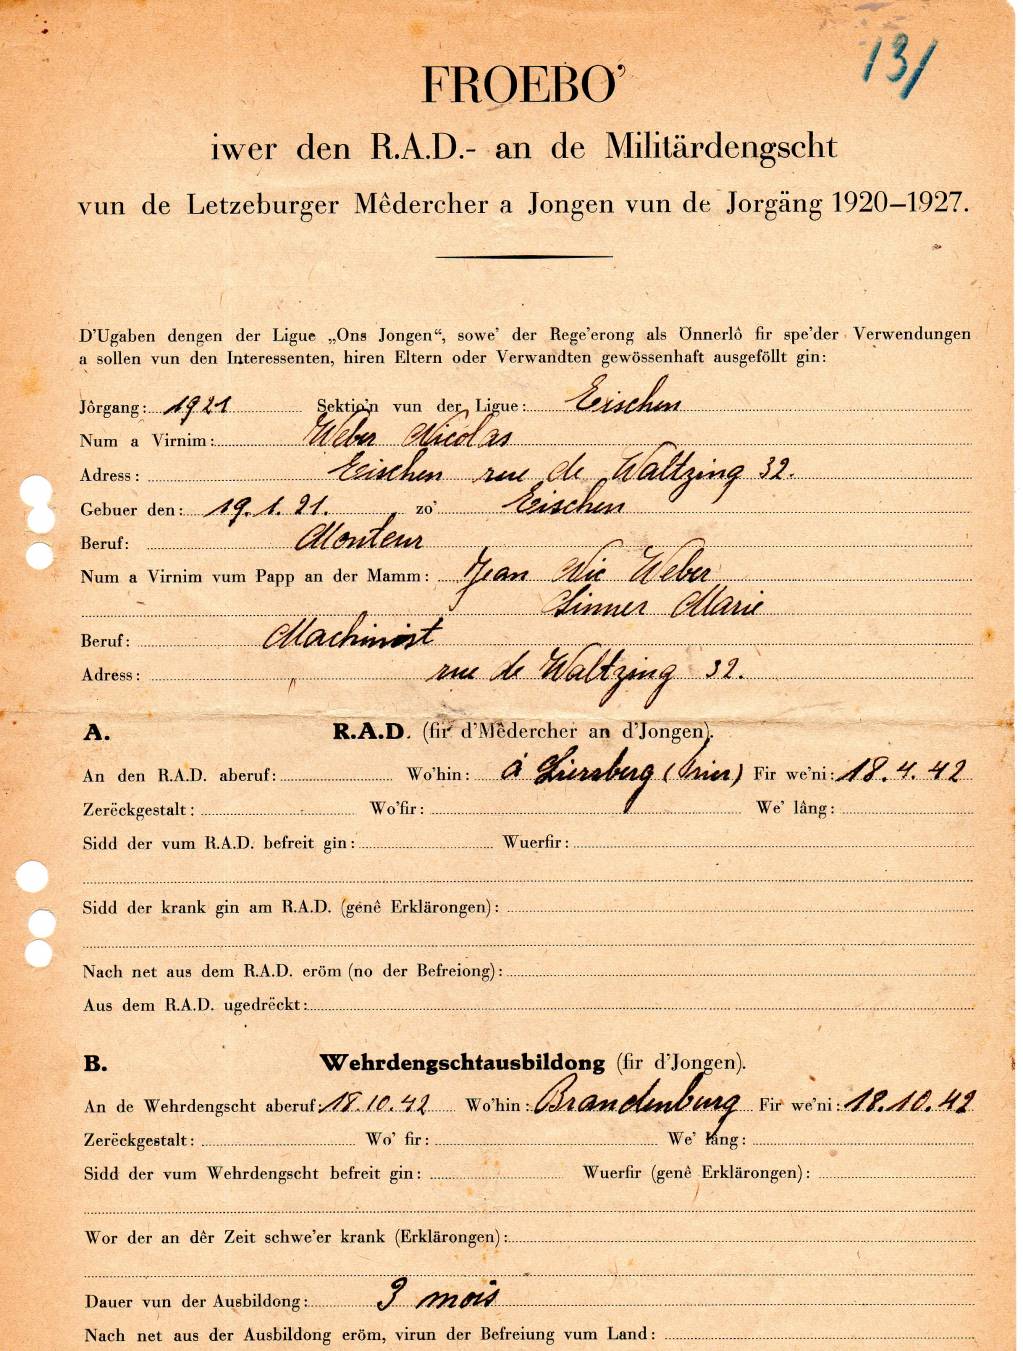 131
FROEBO'
iwer den R.A.D.- an de Militärdengscht
vun de Letzeburger Mêdercher a Jongen vun de Jorgäng 1920–1927.
D'Ugaben dengen der Ligue „Ons Jongen“, sowe' der Rege'erong als Önnerlô fir spe'der Verwendungen
a sollen vun den Interessenten, hiren Eltern oder Verwandten gewössenhaft ausgeföllt gin:
Jôrgang: 1921 Sektio'n vun der Ligue: Eischen
Num a Virnim: Weber Nicolas
Adress: Eischen rue de Waltzing 32.
Gebuer den: 19.1.21. zo' Eischen
Beruf: Monteur
Num a Virnim vum Papp an der Mamm: Jean Nic Weber
Sinner Marie
Beruf: Machinist
Adress: " rue de Waltzing 32.
A. R.A.D. (fir d'Mêdercher an d'Jongen).
An den R.A.D. aberuf: Wo'hin: à (Trier) Fir we'ni: 18.4.42
Zerëckgestalt: Wo'fir: We' lâng:
Sidd der vum R.A.D. befreit gin: Wuerfir:
Sidd der krank gin am R.A.D. (genê Erklärongen):
Nach net aus dem R.A.D. eröm (no der Befreiong):
Aus dem R.A.D. ugedrëckt:
B. Wehrdengschtausbildong (fir d'Jongen).
An de Wehrdengscht aberuf: 18.10.42 Wo'hin: Brandenburg Fir we'ni: 18.10.42
Zerëckgestalt: Wo' fir: We' lâng:
Sidd der vum Wehrdengscht befreit gin: Wuerfir (genê Erklärongen):
Wor der an dêr Zeit schwe'er krank (Erklärongen):
Dauer vun der Ausbildong: 3 mois
Nach net aus der Ausbildong eröm, virun der Befreiung vum Land: